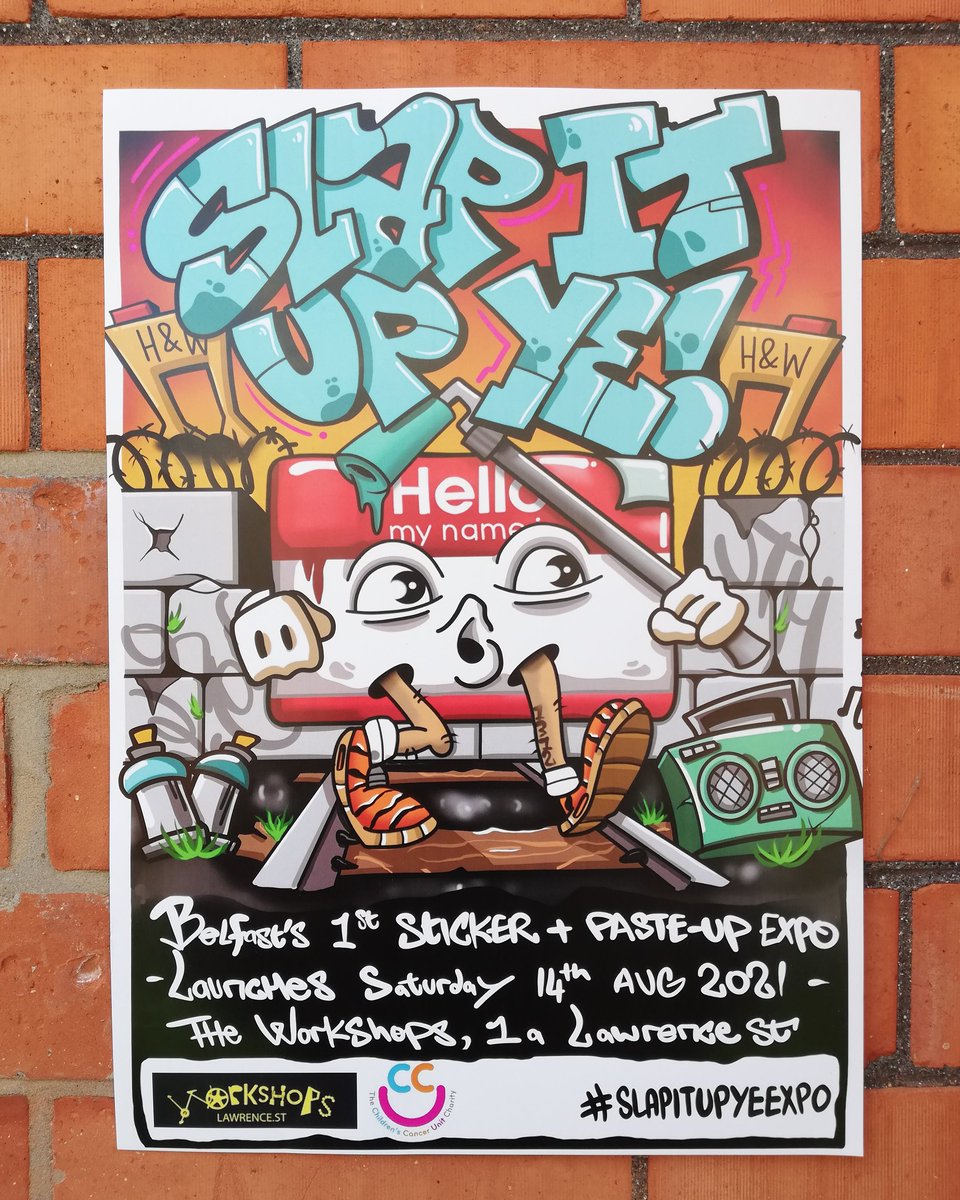 SLAP IT
UP YE!
H&W
H&W
Hello
my name
Belfast's 1st STICKER + PASTE-UP EXPO
- Launches Saturday 14th AUG 2021 -
The Workshops, 1a Lawrence St
WORKSHOPS
LAWRENCE.ST
CC
The Children's Cancer Unit Charity
#SLAPITUPYEEXPO